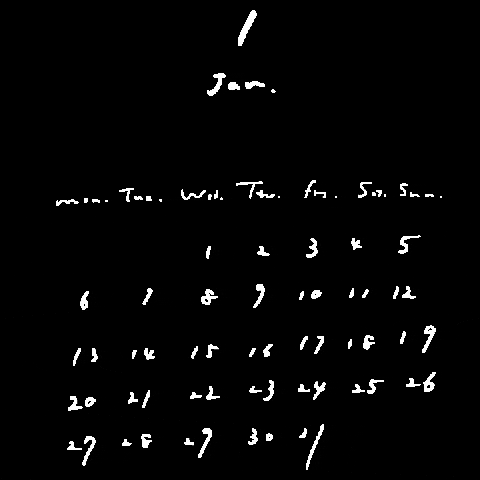 1
Jan.
mon. Tue. Wed. Thu. fri. Sat. Sun.
1 2 3 4 5
6 7 8 9 10 11 12
13 14 15 16 17 18 19
20 21 22 23 24 25 26
27 28 29 30 31